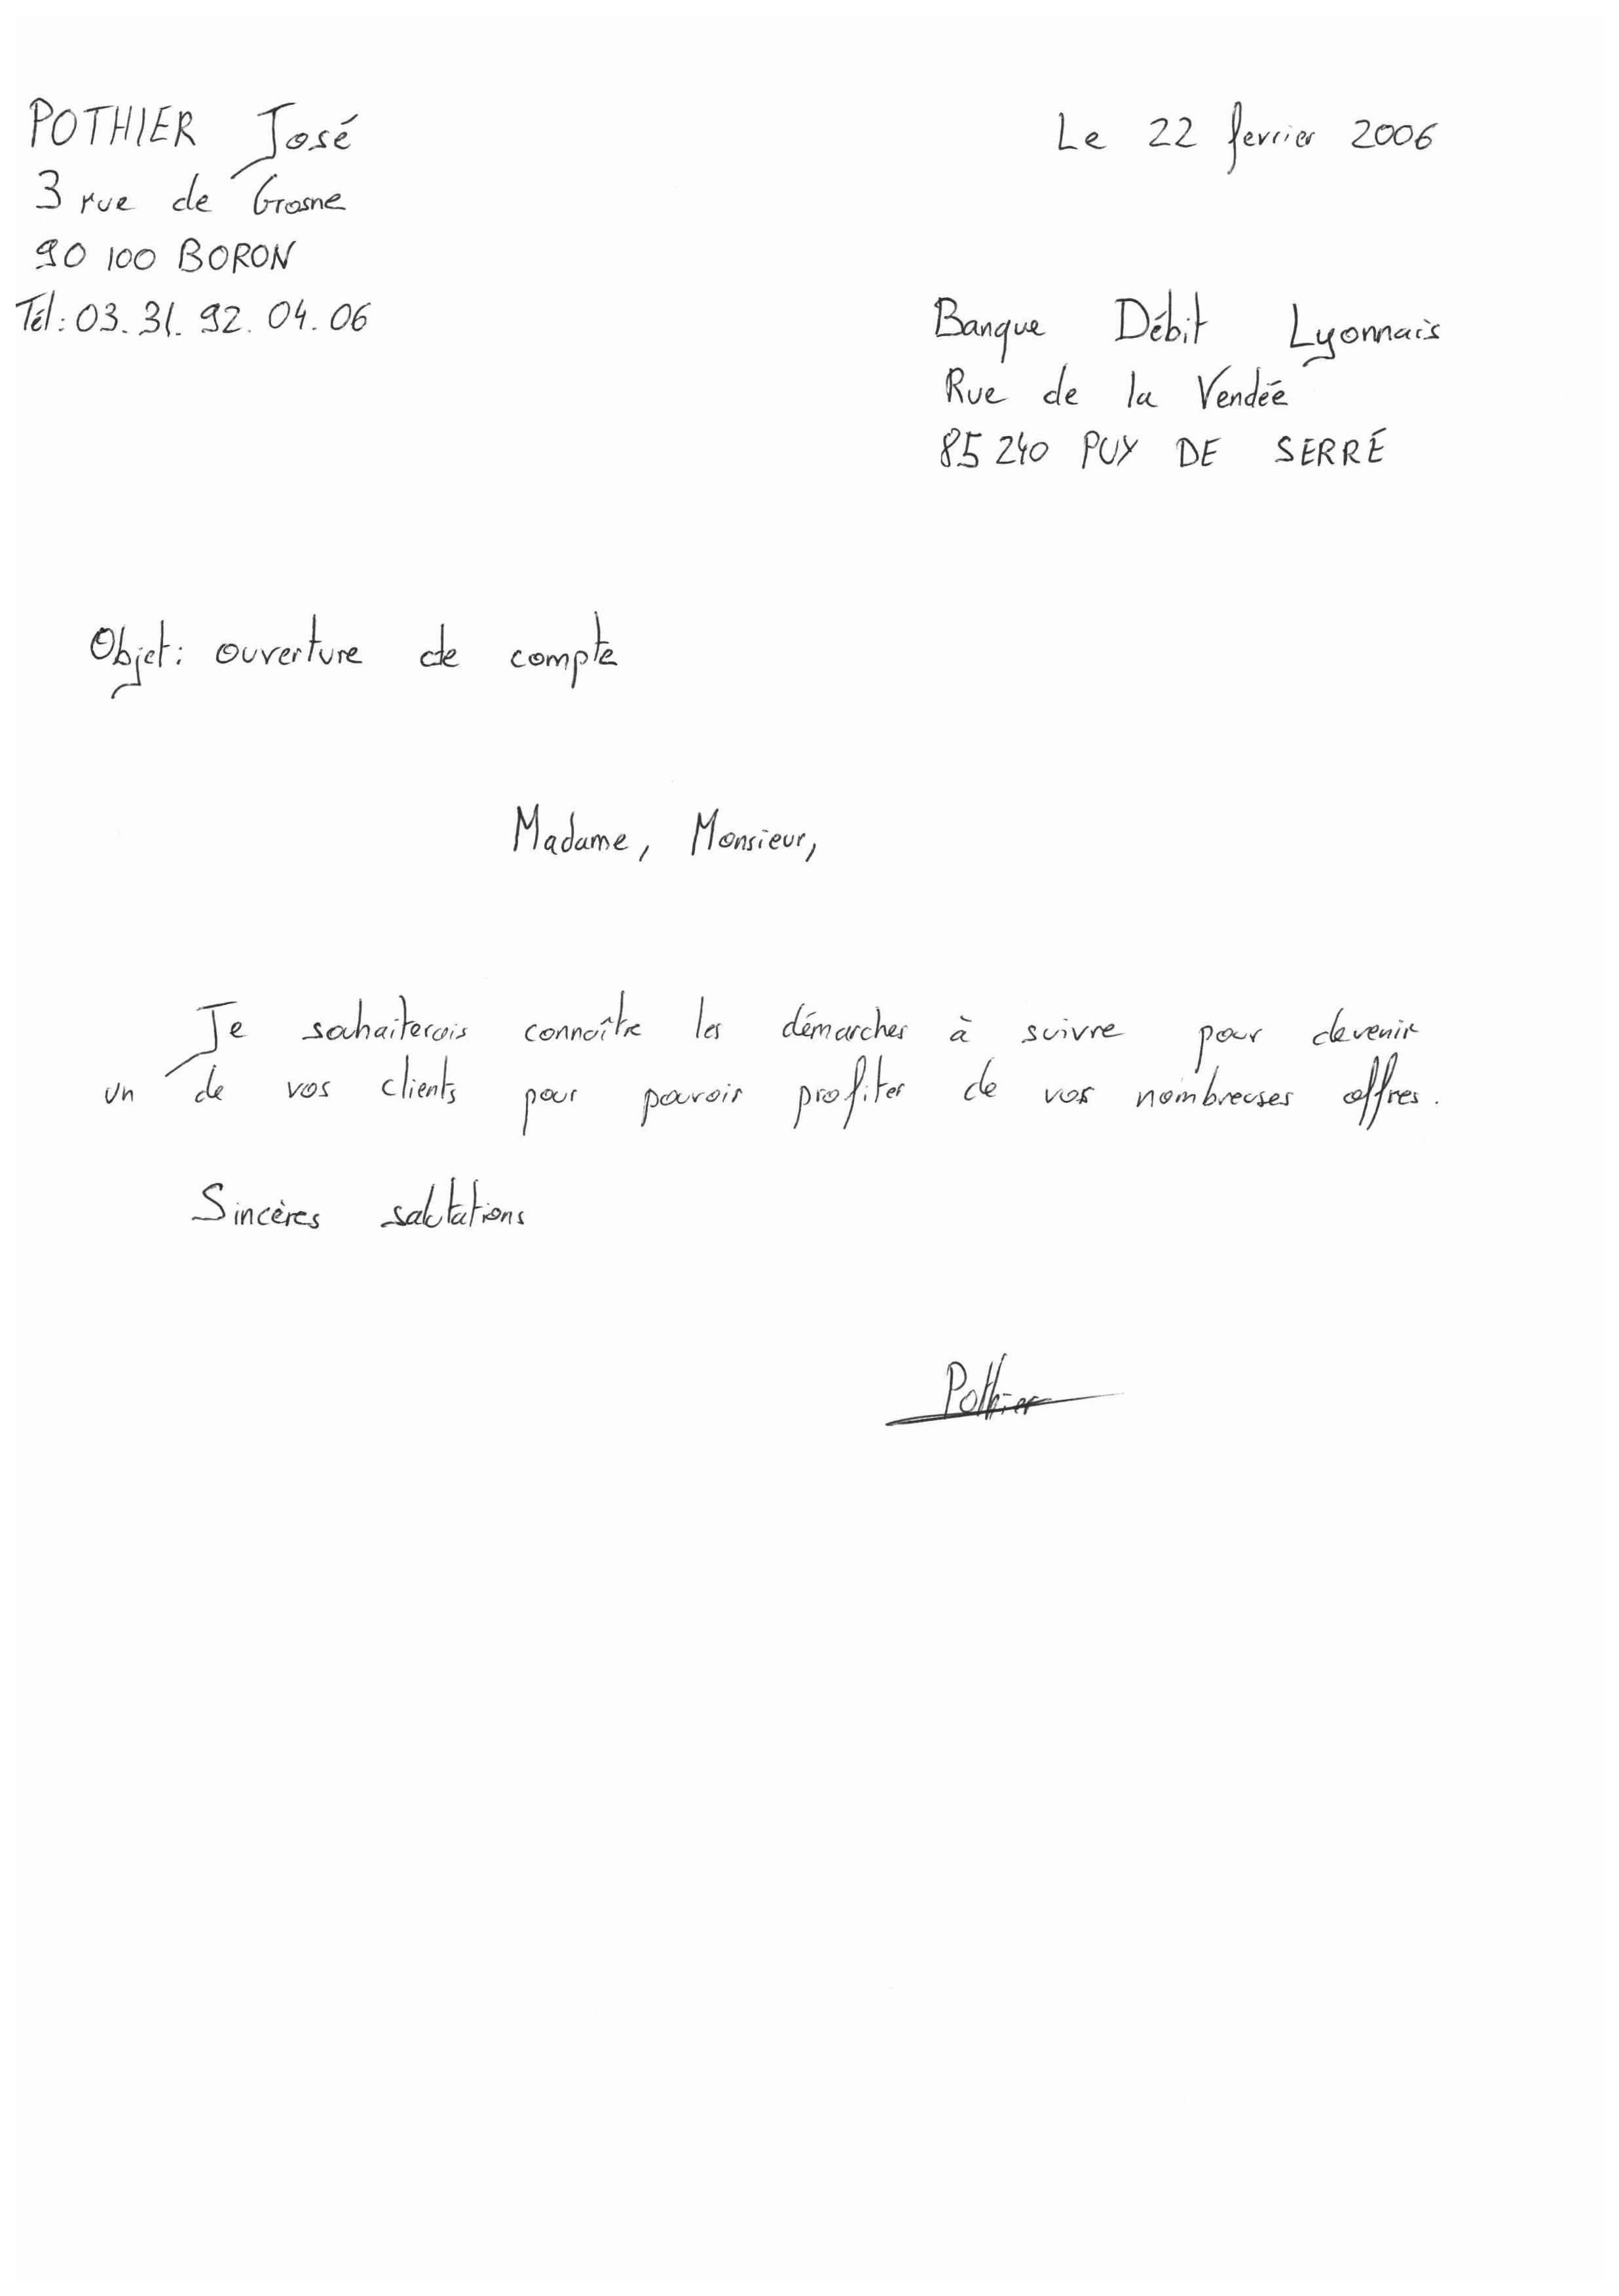 POTHIER José
3 rue de Grosne
90 100 BORON
Tél : 03. 31. 92. 04. 06
Le 22 fevrier 2006
Banque Débit Lyonnais
Rue de la Vendée
85 240 PUY DE SERRÉ
Objet : ouverture de compte
Madame, Monsieur,
Je souhaiterais connaître les démarches à suivre pour devenir
un de vos clients pour pouvoir profiter de vos nombreuses offres.
Sincères salutations
Pothier